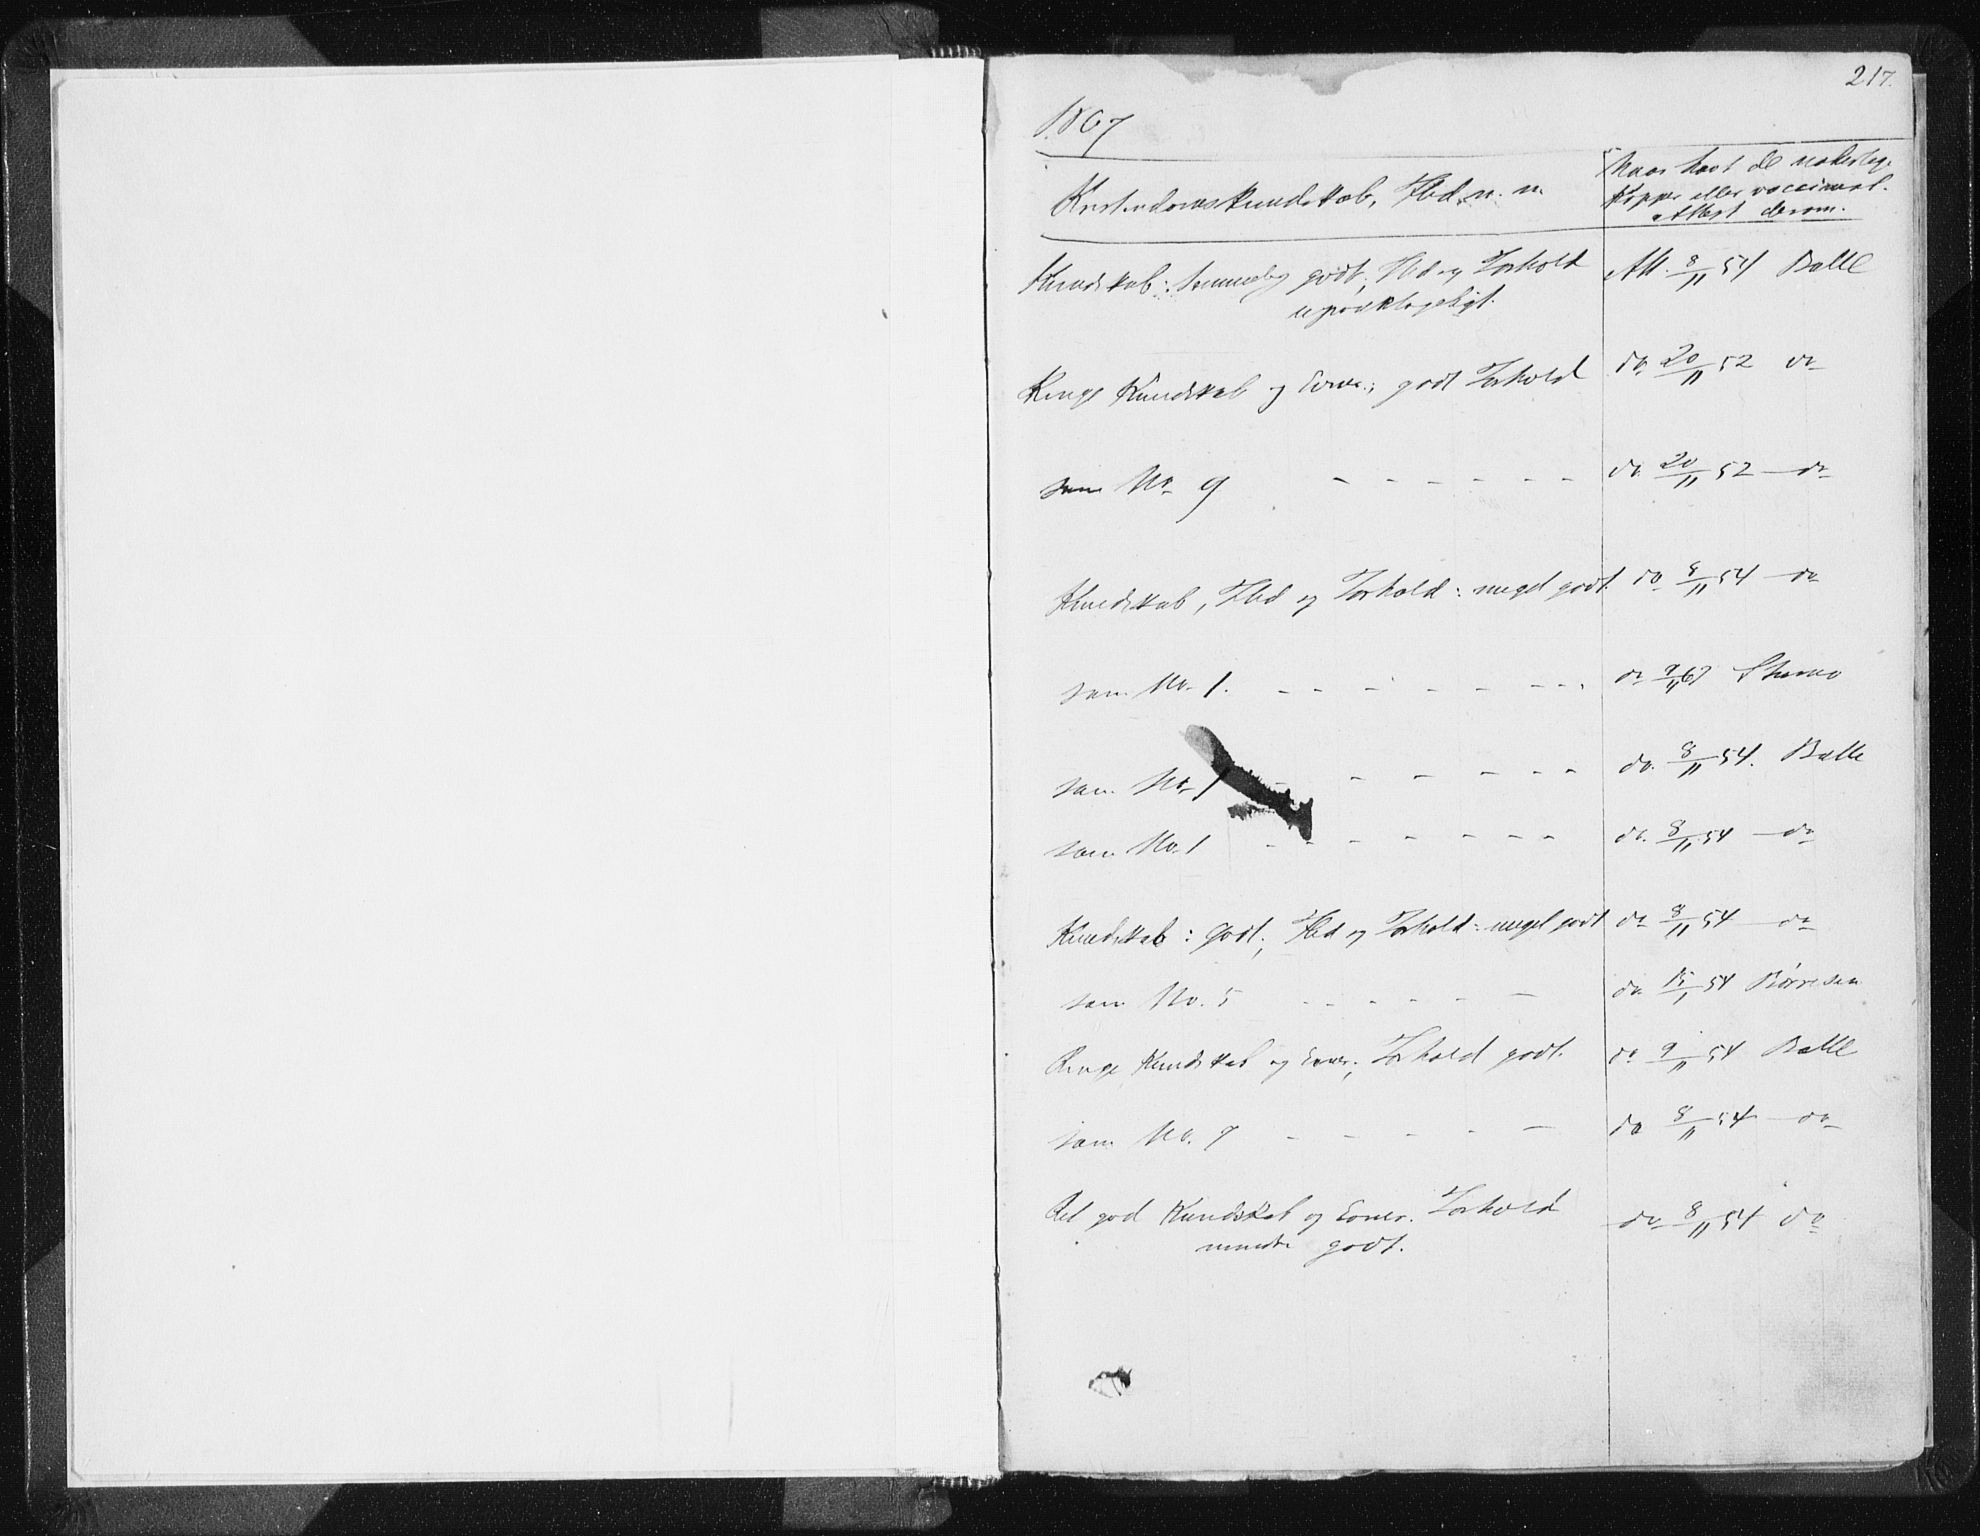 217.
1867
Kristendomskundskab, Flid m. m.
Naar havt de naturlige
Kopper eller vaccineret.
Attest derom.
Kundskab: temmelig godt; Flid og Forhold
upaaklageligt.
Att. 8/11 54 Balle
Ringe Kundskab og Evner; godt Forhold
do 20/11 52 do
som No. 9 - - - - - -
do. 20/11 52 - do
Kundskab, Flid og Forhold: meget godt.
do 8/11 54 - do
som No. 1. - - - - - - -
do
som No. 1 - - - - - -
do. 8/11 54. Balle
som No. 1 - - - - - - -
do. 8/11 54 - do
Kundskab: godt; Flid og Forhold: meget godt
do 8/11 54 - do
som No. 5 - - - - - -
do. 15/1 54 Børresen
Ringe Kundskab og Evner; Forhold godt.
do 9/11 54 Balle
som No. 9 - - - - -
do 8/11 54 - do
Ret god Kundskab og Evner. Forhold
mindre godt.
do 8/11 54 do